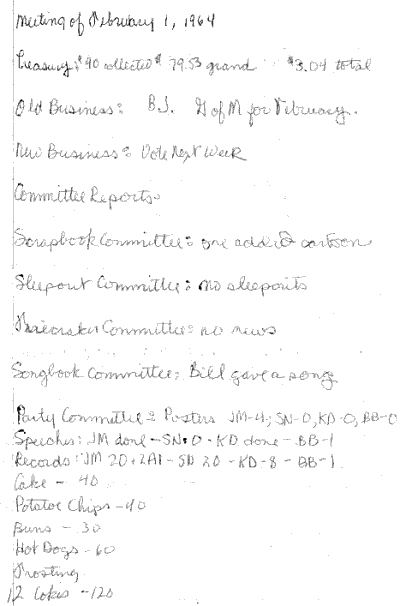 Meeting of February 1, 1964
Treasury: $.90 collected $ 79.53 grand $3.04 total
Old Business: B.J. G of M for February.
New Business: Vote Next Week
Committee Reports.
Scrapbook Committee: one added cartoon
Sleepout Committee: no sleepouts
Committee: no news
Songbook Committee; Bill gave a song
Party Committee: Posters JM-4; SN-0, KD-0, BB-0
Speeches: JM done - SN-0 - KD done - BB-1
Records: JM 20 + 2Al - SN 20 - KD-8 - BB-1
Cake - 40
Potatoe Chips - 40
Buns - 30
Hot Dogs - 60
Frosting
12 Cokes - 120